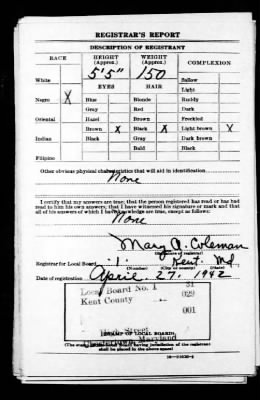 REGISTRAR'S REPORT
DESCRIPTION OF REGISTRANT
RACE HEIGHT (Approx.) WEIGHT (Approx.) COMPLEXION
5'5" 150
White Sallow
EYES HAIR Light
Negro X Blue Blonde Ruddy
Gray Red Dark
Oriental Hazel Brown Freckled
Brown X Black X Light brown X
Indian Black Gray Dark brown
Bald Black
Filipino
Other obvious physical characteristics that will aid in identification
None
I certify that my answers are true; that the person registered has read or has had
read to him his own answers; that I have witnessed his signature or mark and that
all of his answers of which I have knowledge are true, except as follows:
None
Mary A. Coleman
Registrar for Local Board 1 Kent Md.
(Number) (City or county) (State)
Date of registration April 27, 1942
Local Board No. 1 31
Kent County 029
001
Street
Maryland
(STAMP OF LOCAL BOARD)
shall be placed in the above space)